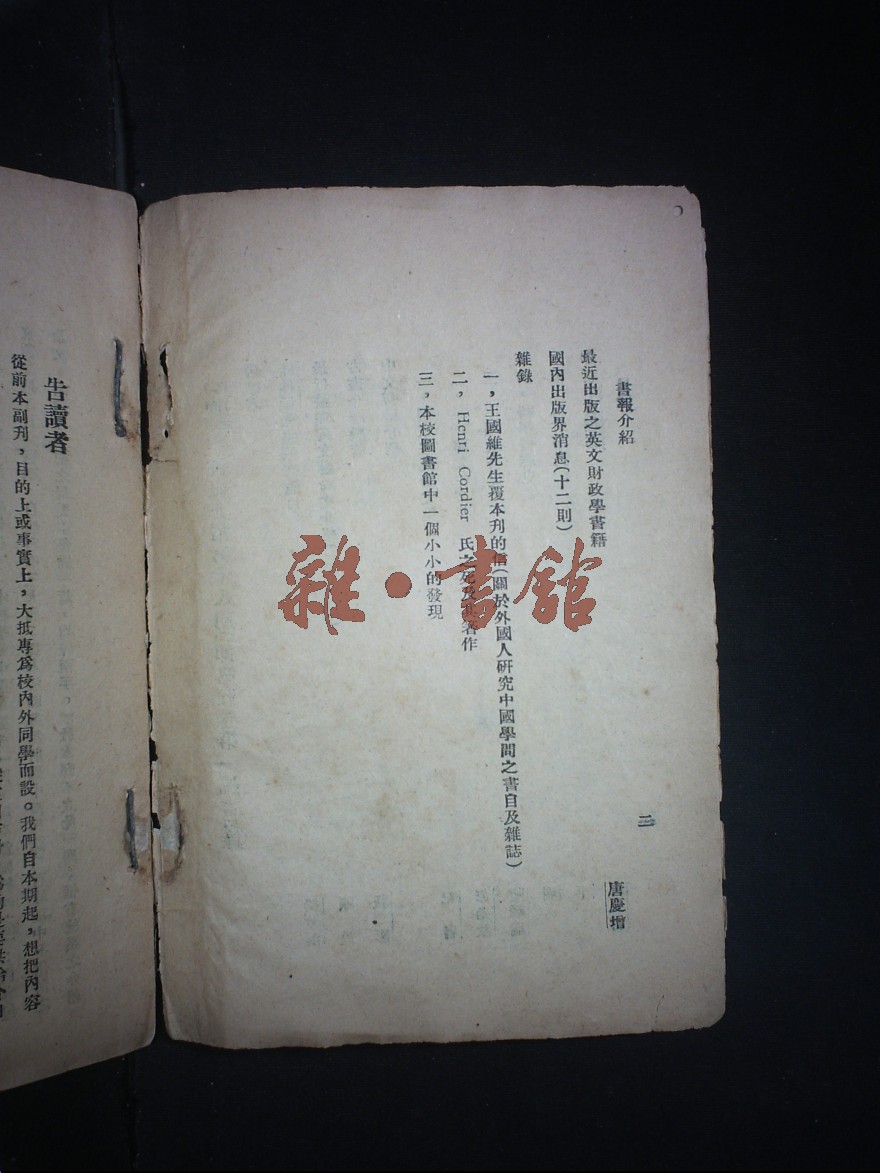 二
書報介紹
最近出版之英文財政學書籍 唐慶增
國內出版界消息(十二則)
雜錄
一，王國維先生覆本刋的信(關於外國人研究中國學問之書自及雜誌)
二，Henri Cordier 氏之死及其著作
三，本校圖書館中一個小小的發現
雜·書館
告讀者
從前本副刋，目的上或事實上，大抵專爲校內外同學而設。我們自本期起，想把內容